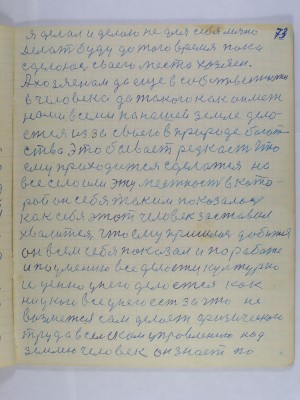 я делал и делаю не для себя лично 73
делать буду до того время пока
сделаюсь своего места хозяин.
А хозяином да еще в собственности
в человека до такого как он меж
нами всеми на нашей земле дело-
ется из за своего в природе богат
ства. Это бывает редкость что
ему приходится сделатся на
все село или эту местность в кото
рой он себя таким показал
как себя этот человек заставил
хвалится что ему пришлося добится
он всем себя показал и по работе
и по умению все делости культурно
и ценно у него делается как
ни у кого все у него есть за это не
возмется сам делает физического
труда в сельском управлению над
землею человек он знает по